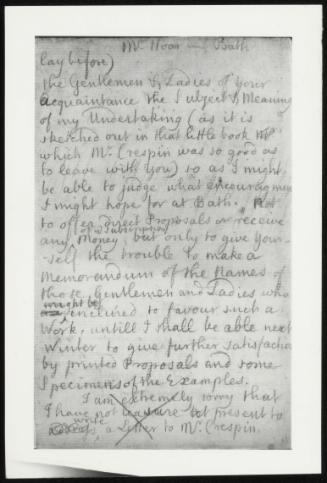 Mr. Hoar Bath
lay before)
the Gentlemen & Ladies of your
Acquaintance the Subject & Meaning
of my Undertaking (as it is
sketched out in that little book
which Mr. Crespin was so good as
to leave with you) so as I might
be able to judge what encouragmen
I might hope for at Bath. Not
to offer direct Proposals or receive
of a Subscription
any Money, but only to give your-
self the trouble to make a
Memorandum of the Names of
those Gentlemen and Ladies who
might be
inclined to favour such a
Work, untill I shall be able next
Winter to give further Satisfaction
by printed Proposals and some
Specimens of the Examples.
I am extremely sorry that
I have not leasure at present to
write
a Letter to Mr. Crespin.